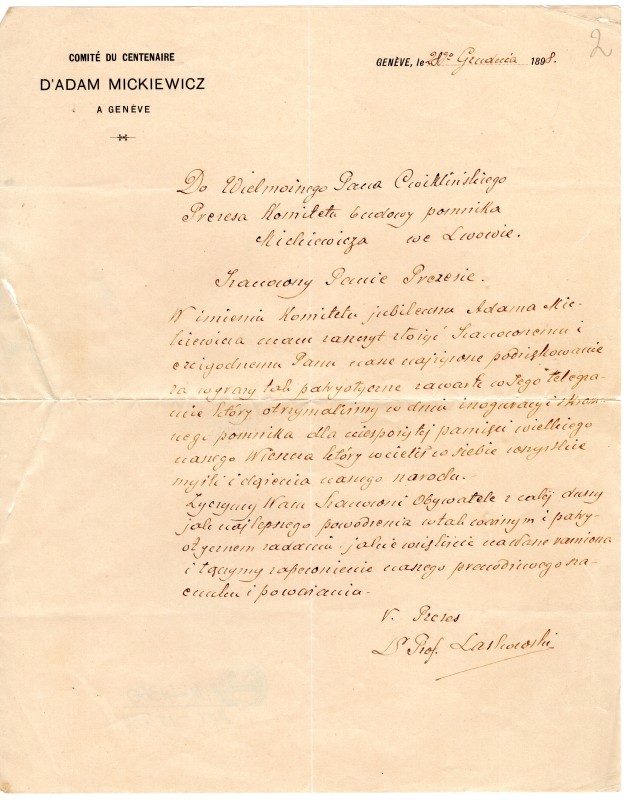 2
COMITÉ DU CENTENAIRE
D'ADAM MICKIEWICZ
A GENÈVE
GENÈVE, le 28go Grudnia 1898.
Do Wielmożnego Pana Ćwiklińskiego
Prezesa Komitetu budowy pomnika
Mickiewicza we Lwowie.
Szanowny Panie Prezesie.
W imieniu Komitetu jubileuszu Adama Mic-
kiewicza mam zaszczyt złożyć Szanownemu i
czcigodnemu Panu nasze najżywsze podziękowanie
za wyrazy tak patryotyczne zawarte w Jego telegra-
mie który otrzymaliśmy w dniu inoguracyi skrom-
nego pomnika dla niespożytej pamięci wielkiego
naszego Wieszcza który wcielił w siebie wszystkie
myśli i dążenia naszego narodu.
Życzymy Wam Szanowni Obywatele z całej duszy
jak najlepszego powodzenia w tak ważnym i patry-
otycznem zadaniu jakie wzięliście na wasze ramiona
i łączymy zapewnienie naszego prawdziwego sza-
cunku i poważania.
V. Prezes
Dr Prof. Laskowski